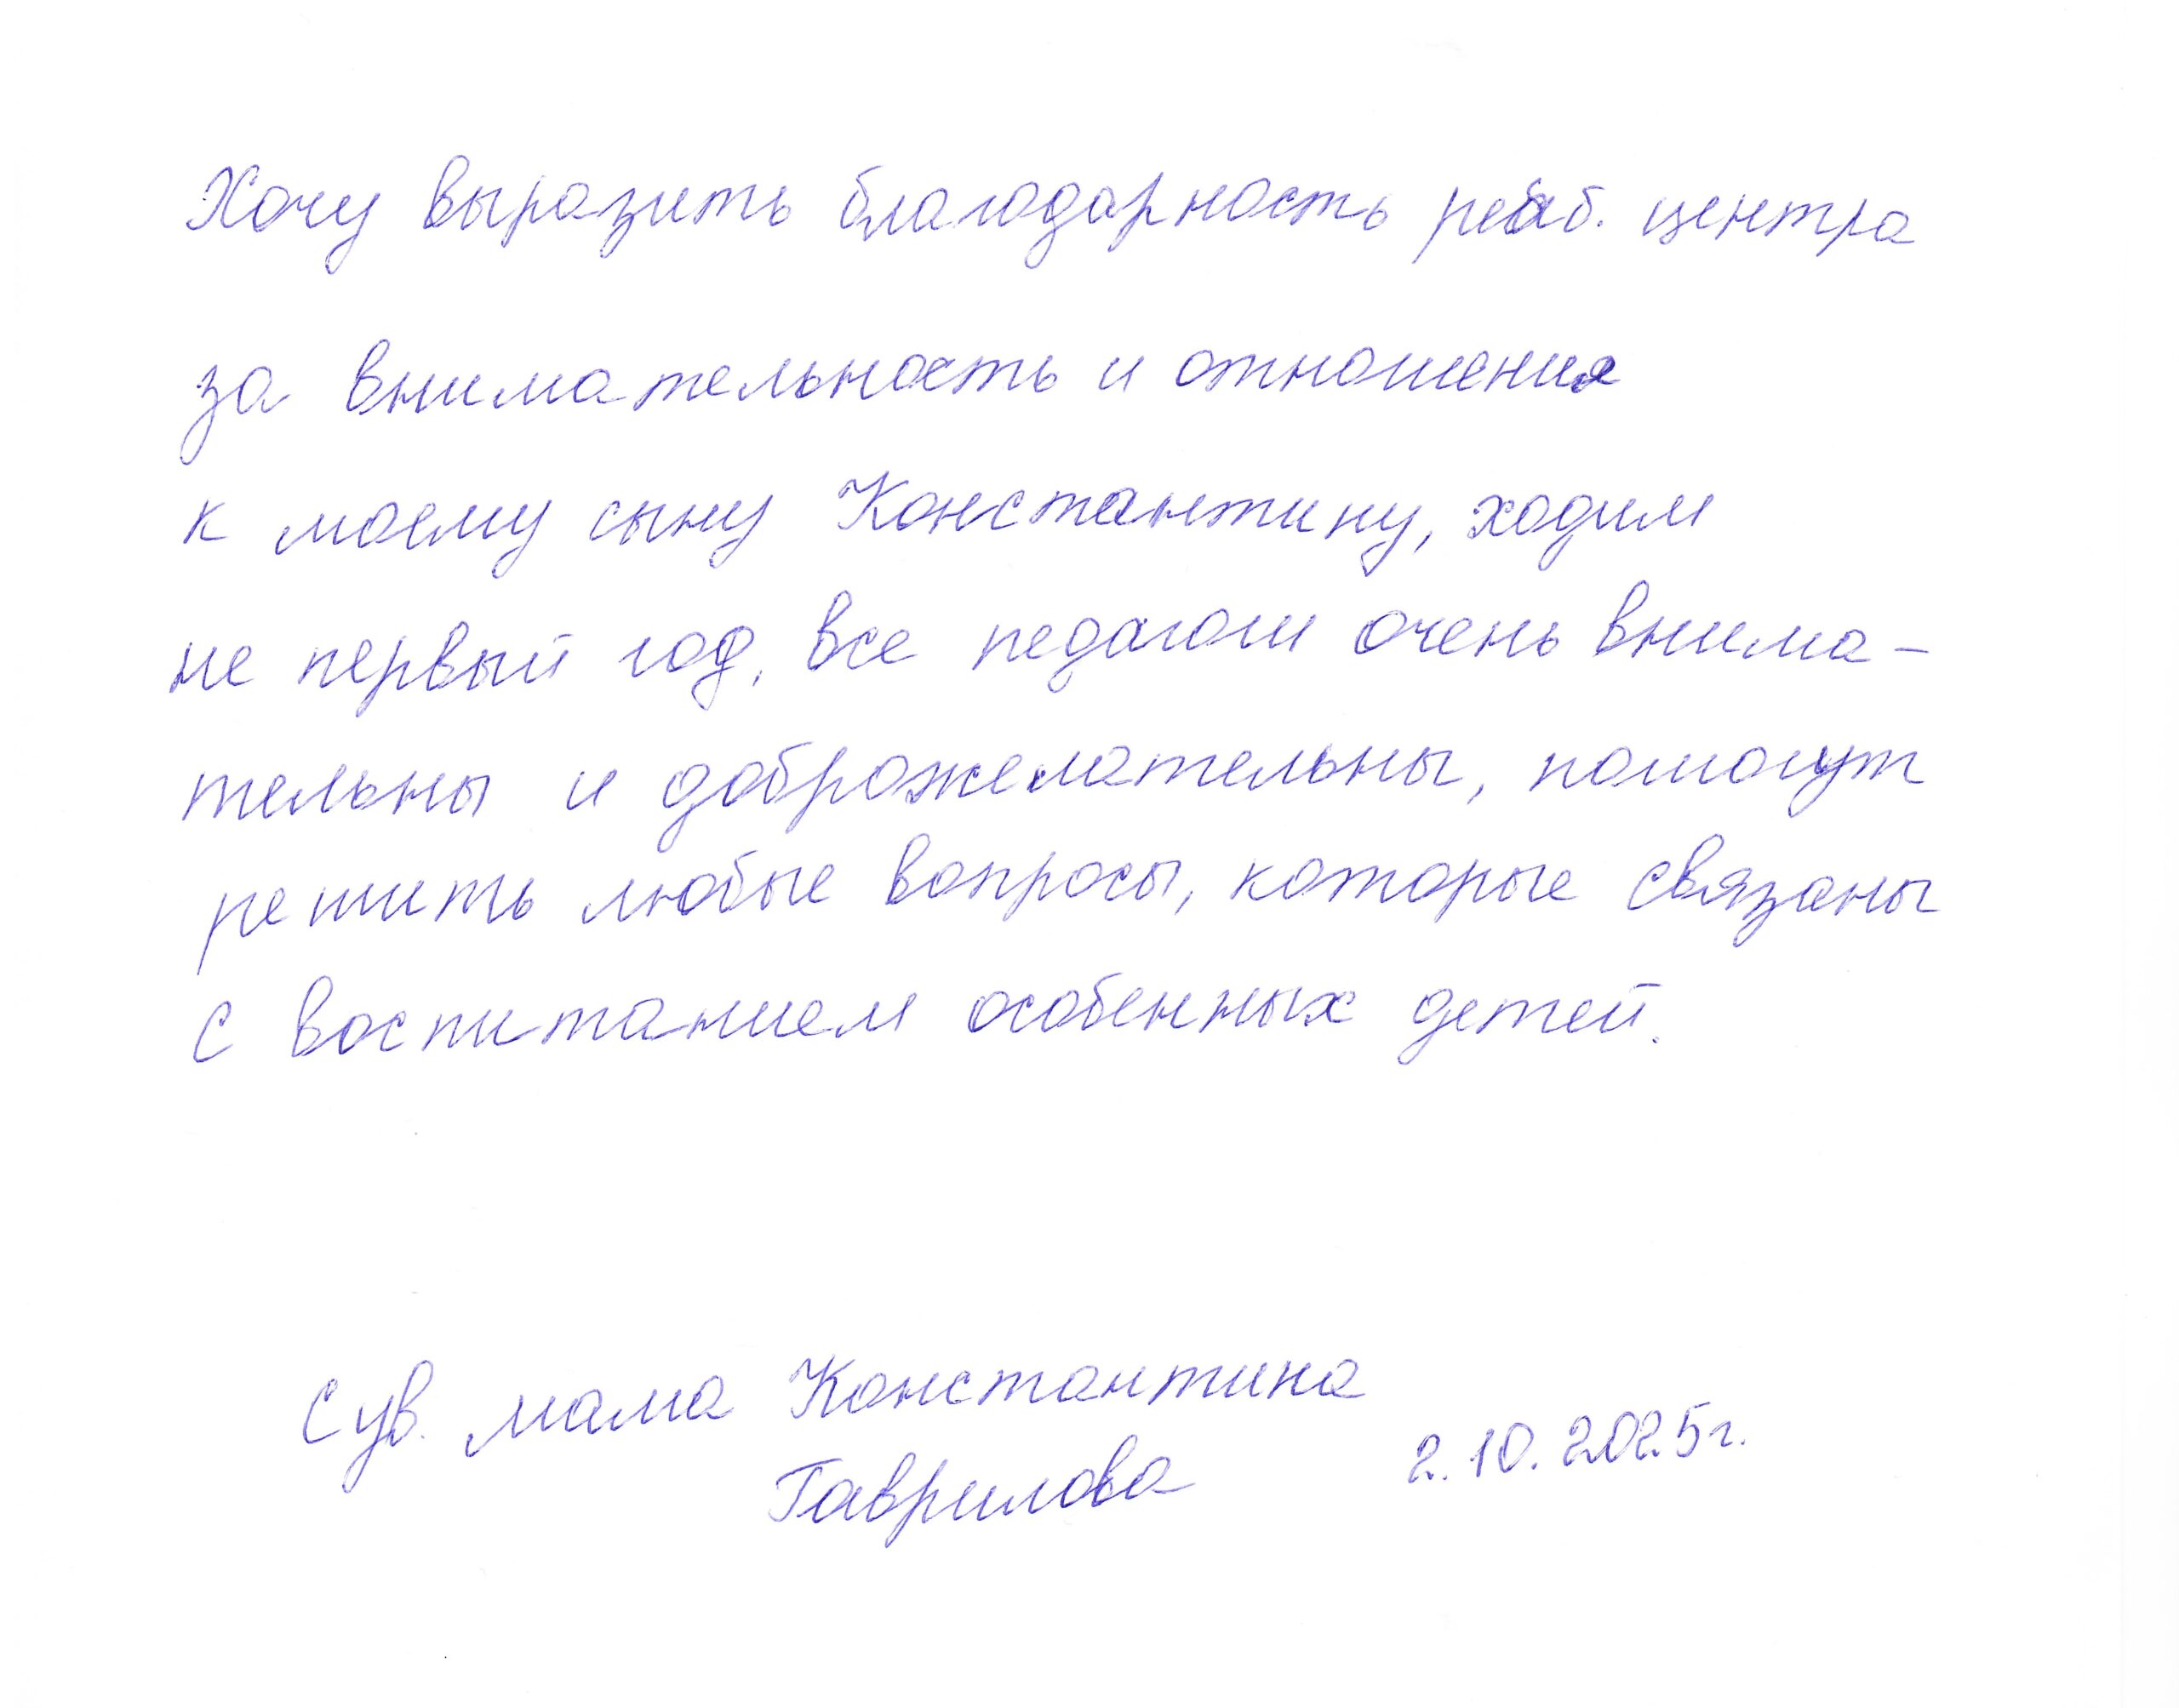 Хочу выразить благодарность реаб. центра
за внимательность и отношения
к моему сыну Константину, ходим
не первый год, все педагоги очень внима-
тельны и доброжелательны, помогут
решить любые вопросы, которые связаны
с воспитанием особенных детей.
С ув. мама Константина
Гаврилова 2.10.2025г.